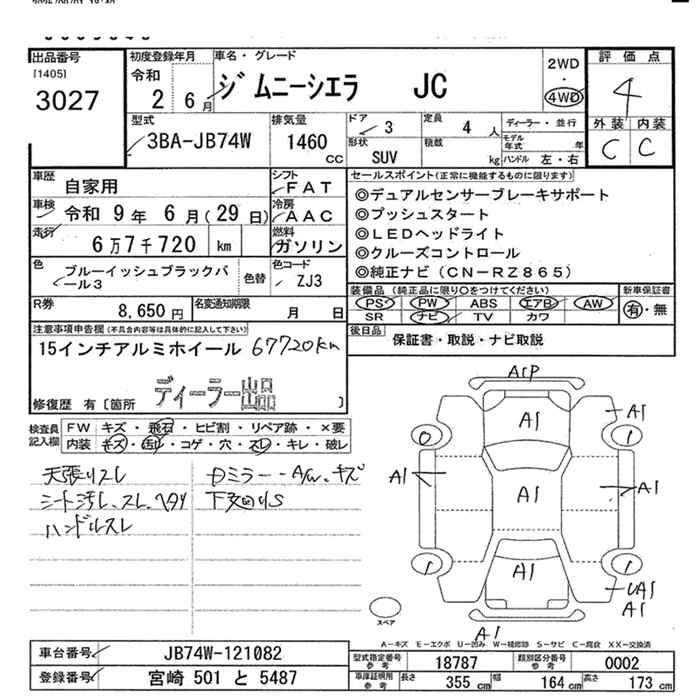 出品番号
[1405]
3027
初度登録年月
令和
2 6月
車名・グレード
ジムニーシエラ JC
2WD
・
4WD
評価点
4
外装 内装
C C
型式
3BA-JB74W
排気量
1460
cc
ドア
3
形状
SUV
定員
4 人
積載
kg
ディーラー・並行
モデル年式 年
ハンドル 左・右
車歴
自家用
シフト
FAT
車検
令和 9年 6月(29日)
冷房
AAC
走行
6万7千720 km
燃料
ガソリン
色
ブルーイッシュブラックパール3
色替
色コード
ZJ3
R券
8,650円
名変通知期限
月 日
セールスポイント(正常に機能するものに限ります)
◎デュアルセンサーブレーキサポート
◎プッシュスタート
◎LEDヘッドライト
◎クルーズコントロール
◎純正ナビ(CN-RZ865)
装備品 (純正品に限り○をつけてください)
PS PW ABS エアB AW
SR ナビ TV カワ
新車保証書
有・無
後日品
保証書・取説・ナビ取説
注意事項申告欄(不具合内容等は具体的に記入して下さい)
15インチアルミホイール 67720km
ディーラー出品
修復歴 有〔箇所 〕
検査員記入欄
FW キズ・飛石・ヒビ割・リペア跡・×要
内装 キズ・汚れ・コゲ・穴・スレ・キレ・破レ
天張りスレ
シート汚レ、スレ、ヘタリ
ハンドルスレ
ミラー・A/w、キズ
A1P
A1
A1
A1
A1
A1
A1
UA1
A1
A1
スペア
A-キズ E-エクボ U-凹み W-補修跡 S-サビ C-腐食 XX-交換済
車台番号
JB74W-121082
登録番号
宮崎 501 と 5487
型式指定番号
参考
18787
類別区分番号
参考
0002
車庫証明用
参考
長さ 355 cm
幅 164 cm
高さ 173 cm